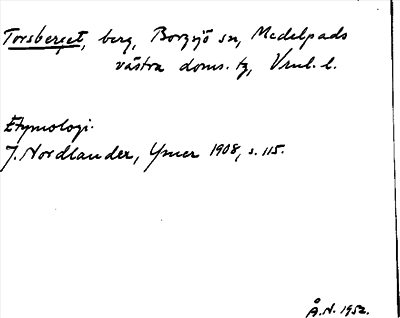 Torsberget, berg, Borgsjö sn, Medelpads
västra doms. tg, Vnul. l.
Etymologi.
J. Nordlander, Ymer 1908, s. 115.
Å.N. 1952.